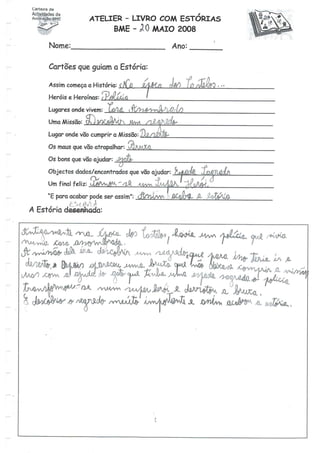 Carteira de
Actividades da
ATELIER – LIVRO COM ESTÓRIAS
BME – 20 MAIO 2008
Nome: Ano:
Cartões que guiam a Estória:
Assim começa a História: Na época dos Castelos...
Heróis e Heroínas: Polícia
Lugares onde vivem: Casa Assombrada
Uma Missão: Descobrir um segredo
Lugar onde vão cumprir a Missão: Deserto
Os maus que vão atrapalhar: Bruxa
Os bons que vão ajudar: gato
Objectos dados/encontrados que vão ajudar: Espada Sagrada
Um final feliz: Tornou-se um Super Herói
"E para acabar pode ser assim": Assim acaba a estória
escrita
A Estória desenhada:
Antigamente na época dos Castelos, havia um polícia que vivia
numa casa assombrada.
A missão dele era descobrir um segredo, que para isso teria ir a
deserto. Depois apareceu uma bruxa que não deixava cumprir a missão
mas com a ajuda do gato que tinha uma espada sagrada o polícia
transformou-se num super herói e derrotou a bruxa.
E descobriu o segredo muito importante e assim acabou a estória.